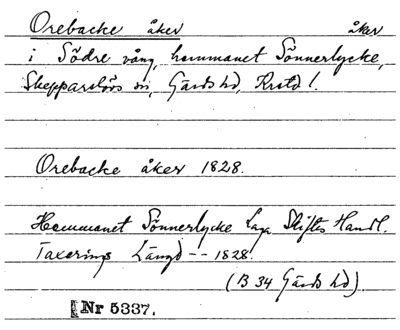 Orebacke åker åker
i Södre vång, hemmanet Sönnerlycke,
Skepparslövs sn, Gärds hd, Krstd l.
Orebacke åker 1828.
Hemmanet Sönnerlycke Laga Skiftes Handl.
Taxerings Längd -- 1828.
(B 34 Gärds hd).
Nr 5337.